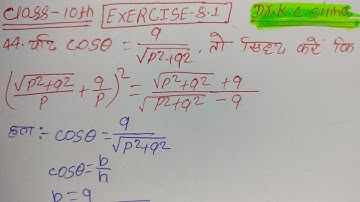 Class-10th EXERCISE-8.1 Dr.K.C.sinha
44. यदि cosθ = q/√p²+q², तो सिद्ध करें कि
(√p²+q²/p + q/p)² = √p²+q² + q/√p²+q² - q
हल:- cosθ = q/√p²+q²
cosθ = b/h
b = q